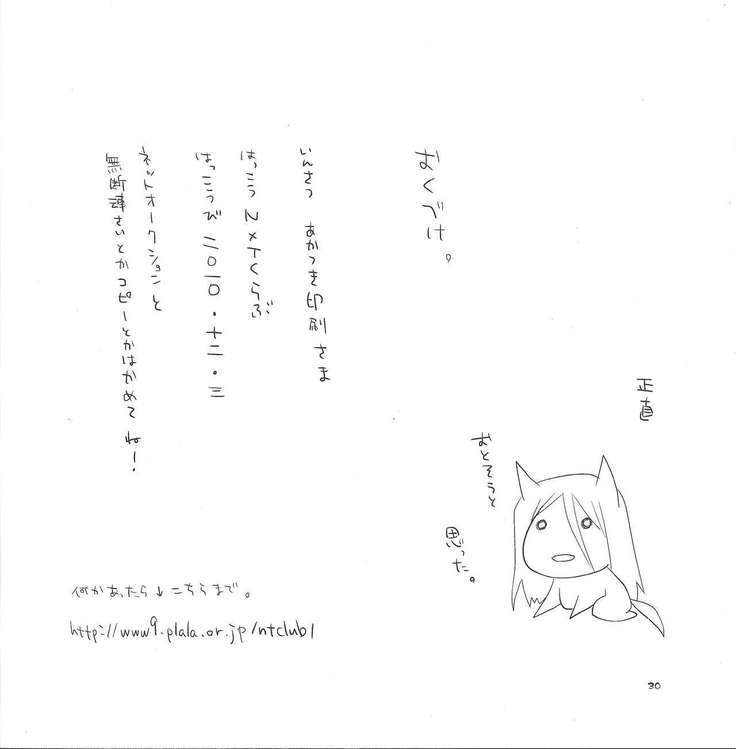 おくづけ。
いんさつ あかつき印刷さま
はっこう N×Tくらぶ
はっこうび 二〇一〇・十二・三
ネットオークションと
無断轉さいとかコピーとかはかめてね!
正直
おとそうと
思った。
何かあったら↓こちらまで。
http://www9.plala.or.jp/ntclub/
30